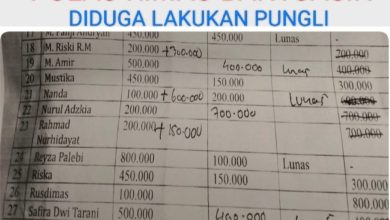 DIDUGA LAKUKAN PUNGLI
17 M. Panji Andryan 450.000 450.000 Lunas -
18 M. Riski R.M 200.000 +300.000 200.000
19 M. Amir 500.000 400.000 Lunas 400.000
20 Mustika 450.000 150.000 300.000
21 Nanda 100.000 +600.000 200.000 Lunas
22 Nurul Adzkia 200.000 700.000 700.000
23 Rahmad Nurhidayat 200.000 +150.000 700.000
24 Reyza Palebi 800.000 100.000 Lunas -
25 Riska 450.000 150.000 300.000
26 Rusdimas 100.000 800.000
27 Safira Dwi Tarani 500.000 400.000